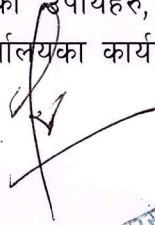 का उपायहरु,
र्यालयका कार्य